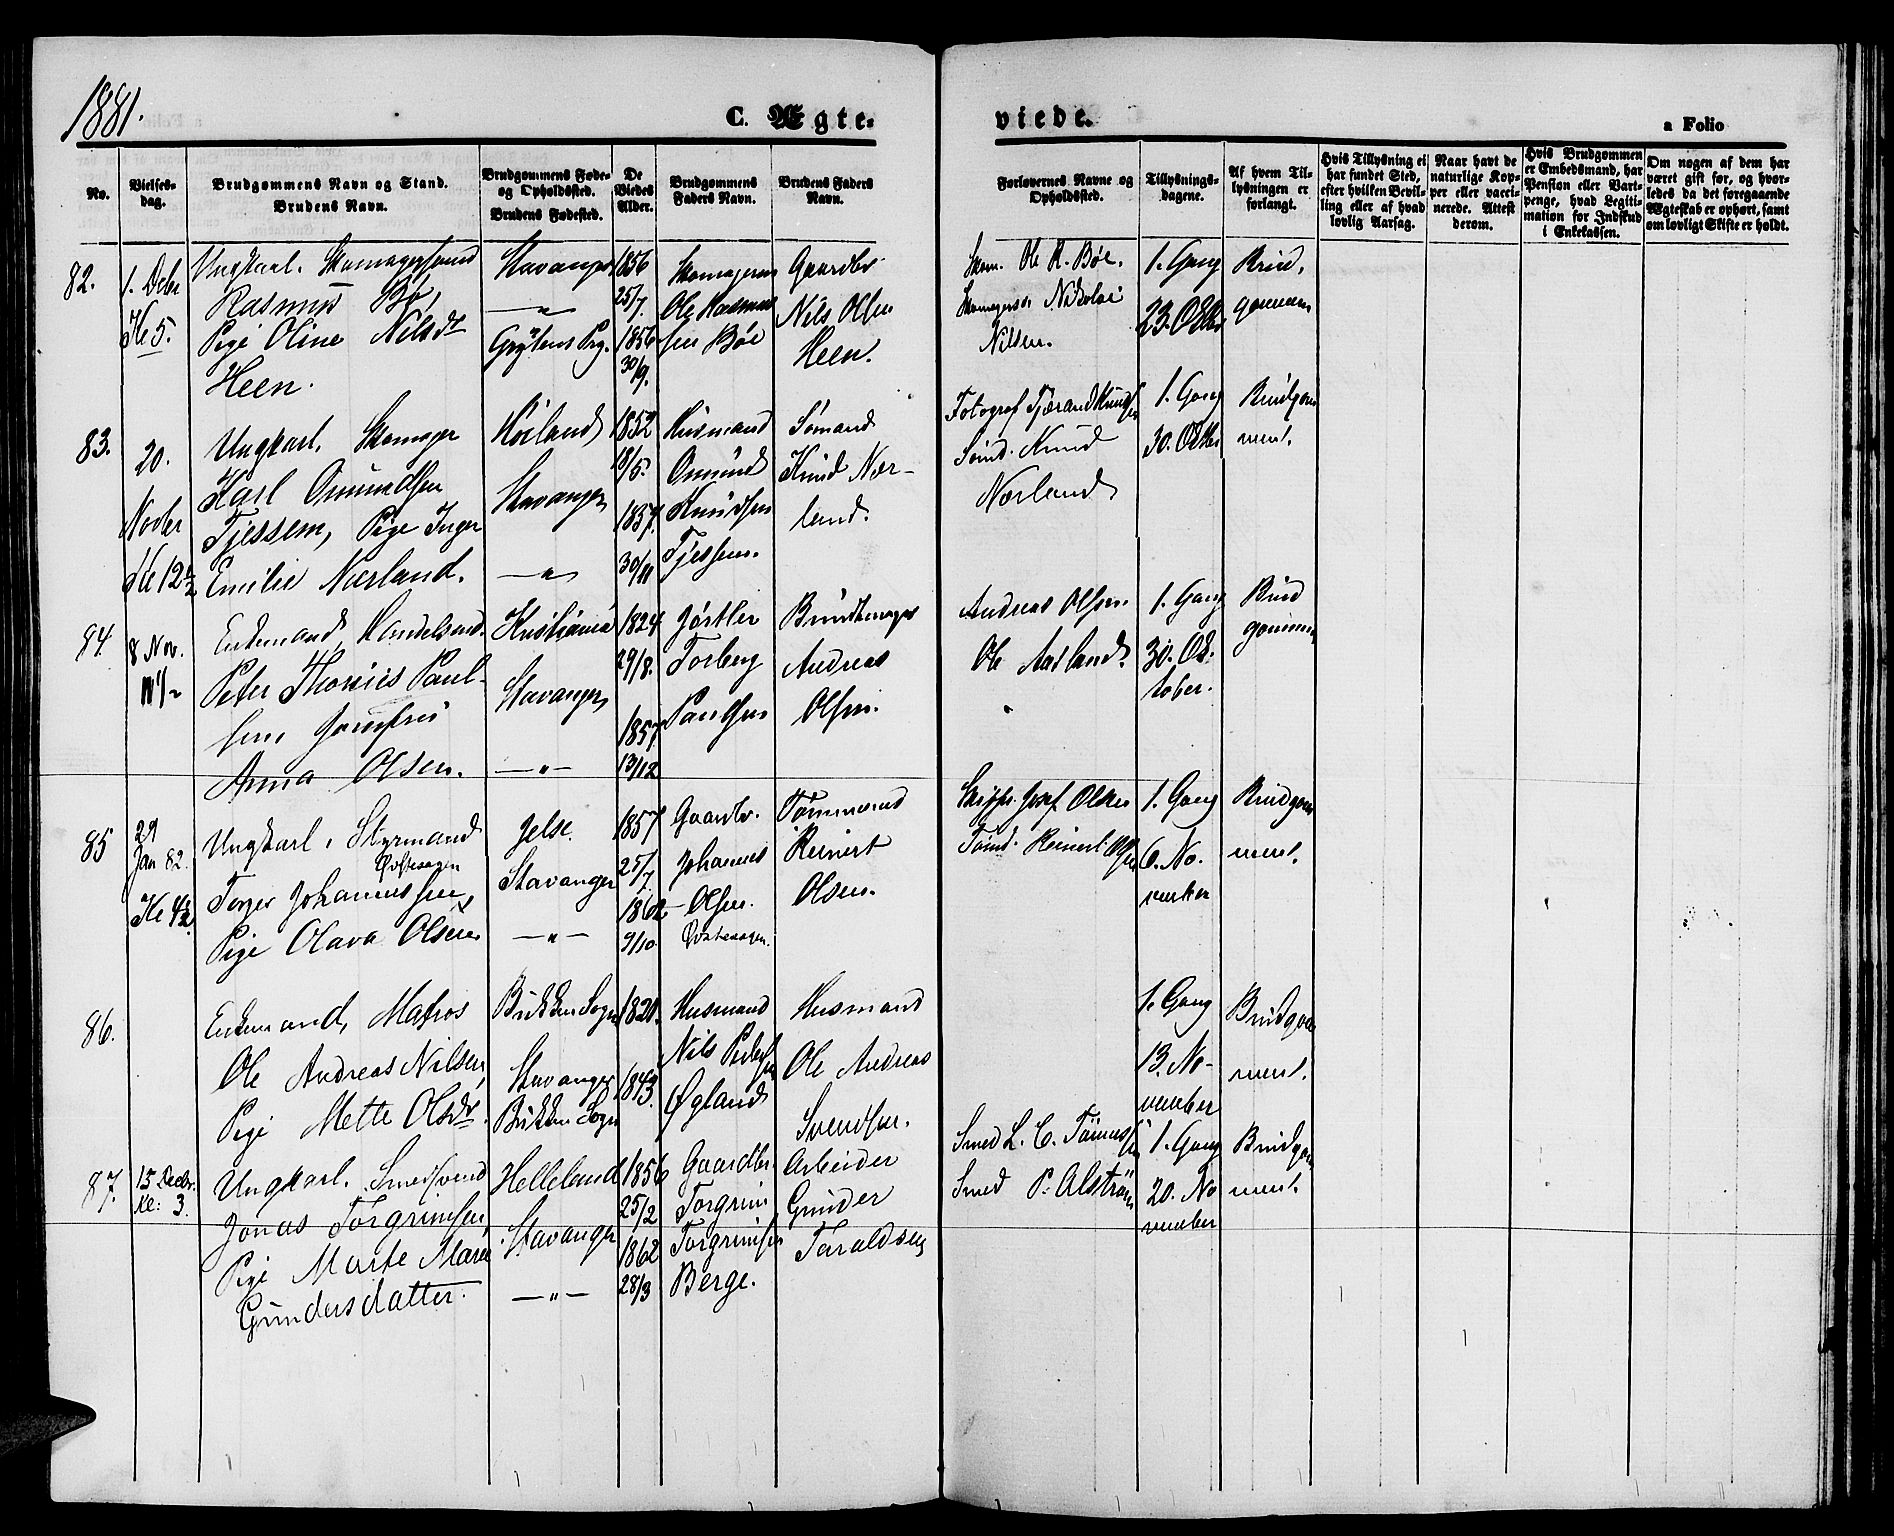 1881.
C. Ægte-
viede.
a Folio
No.
Vielses-
dag.
Brudgommens Navn og Stand.
Brudens Navn.
Brudgommens Føde-
og Opholdssted.
Brudens Fødested.
De
Viedes
Alder.
Brudgommens
Faders Navn.
Brudens Faders
Navn.
Forlovernes Navne og
Opholdssted.
Tillysnings-
dagene.
Af hvem Til-
lysningen er
forlangt.
Hvis Tillysning ei
har fundet Sted,
efter hvilken Bevil-
ling eller af hvad
lovlig Aarsag.
Naar havt de
naturlige Kop-
per eller vacci-
nerede. Attest
derom.
Hvis Brudgommen
er Embedsmand, har
Pension eller Vart-
penge, hvad Legiti-
mation for Indskud
i Enkekassen.
Om nogen af dem har
været gift før, og hvor-
ledes da det foregaaende
Ægteskab er ophørt, samt
om lovligt Skifte er holdt.
82.
1. Deber
Kl 5.
Ungkarl. Skomagersvend
Rasmus Bø,
Pige Oline Nilsdr
Heen.
Stavanger
—"—
Grytens Prg.
1856
25/7.
1856
30/9.
Skomagerm
Ole Rasmus
sen Bøe
Gaardbr
Nils Olsen
Heen.
Skom. Ole R. Bøe.
Skomagersv. Nikolai
Nilsen.
1. Gang
23. Oktbr
Brud.
gommen
83.
20.
Novbr
Kl 12½
Ungkarl. Skomager
Karl Omundsen
Tjessem, Pige Inger
Emilie Nærland.
Høiland
Stavanger
—"—
1852
18/5.
1857.
30/11
Husmand
Omund
Knudsen
Tjessem.
Sømand
Knud Nær-
land.
Fotograf Tjerand Knudsen
Sømd. Knud
Nærland
1. Gang
30. Oktbr
Brudgom
ment.
84.
8 Nov.
11½
Enkemand, Handelsmd.
Peter Thonies Paul-
sen Jomfru
Anna Olsen.
Kristiania
Stavanger
—"—
1824
29/8.
1857
13/12
Torberg
Paulsen
Andreas
Olsen.
Andreas Olsen.
Ole Aasland.
1. Gang
30. Ok-
tober.
Brud
gommen
85
29
Jan 82.
Kl 4½
Ungkarl, Styrmand
Torger Johannessen
Pige Olava Olsen
Jelse.
Stavanger
—"—
1857
25/7.
1862
9/10
Gaardbr.
Johannes
Olsen.
Tømmermd
Reinert
Olsen.
Skippr. Josef Olsen
Tømd. Reinert Olsen
1. Gang
6. No-
vember
Brudgom
ment.
86.
Enkemand, Matros
Ole Andreas Nilsen,
Pige Mette Olsdr.
Bukken Sogn
Stavanger
Bukken Sogn
1821.
1843.
Husmand
Nils Peder
sen
Øgland
Husmand
Ole Andreas
Svendsen.
1. Gang
13. No-
vember
Brudgom
ment.
87.
15 Decbr.
Kl: 3.
Ungkarl. Smedsvend
Jonas Torgrimsen,
Pige Marte Marie
Gundersdatter.
Helleland
Stavanger
—"—
1856
25/2
1862
28/3
Gaardbr.
Torgrim
Torgrimsen
Berge.
Arbeider
Gunder
Taraldsen
Smed L. C. Tønnessen
Smed P. Alström
1. Gang
20. No
vember
Brudgom
ment.